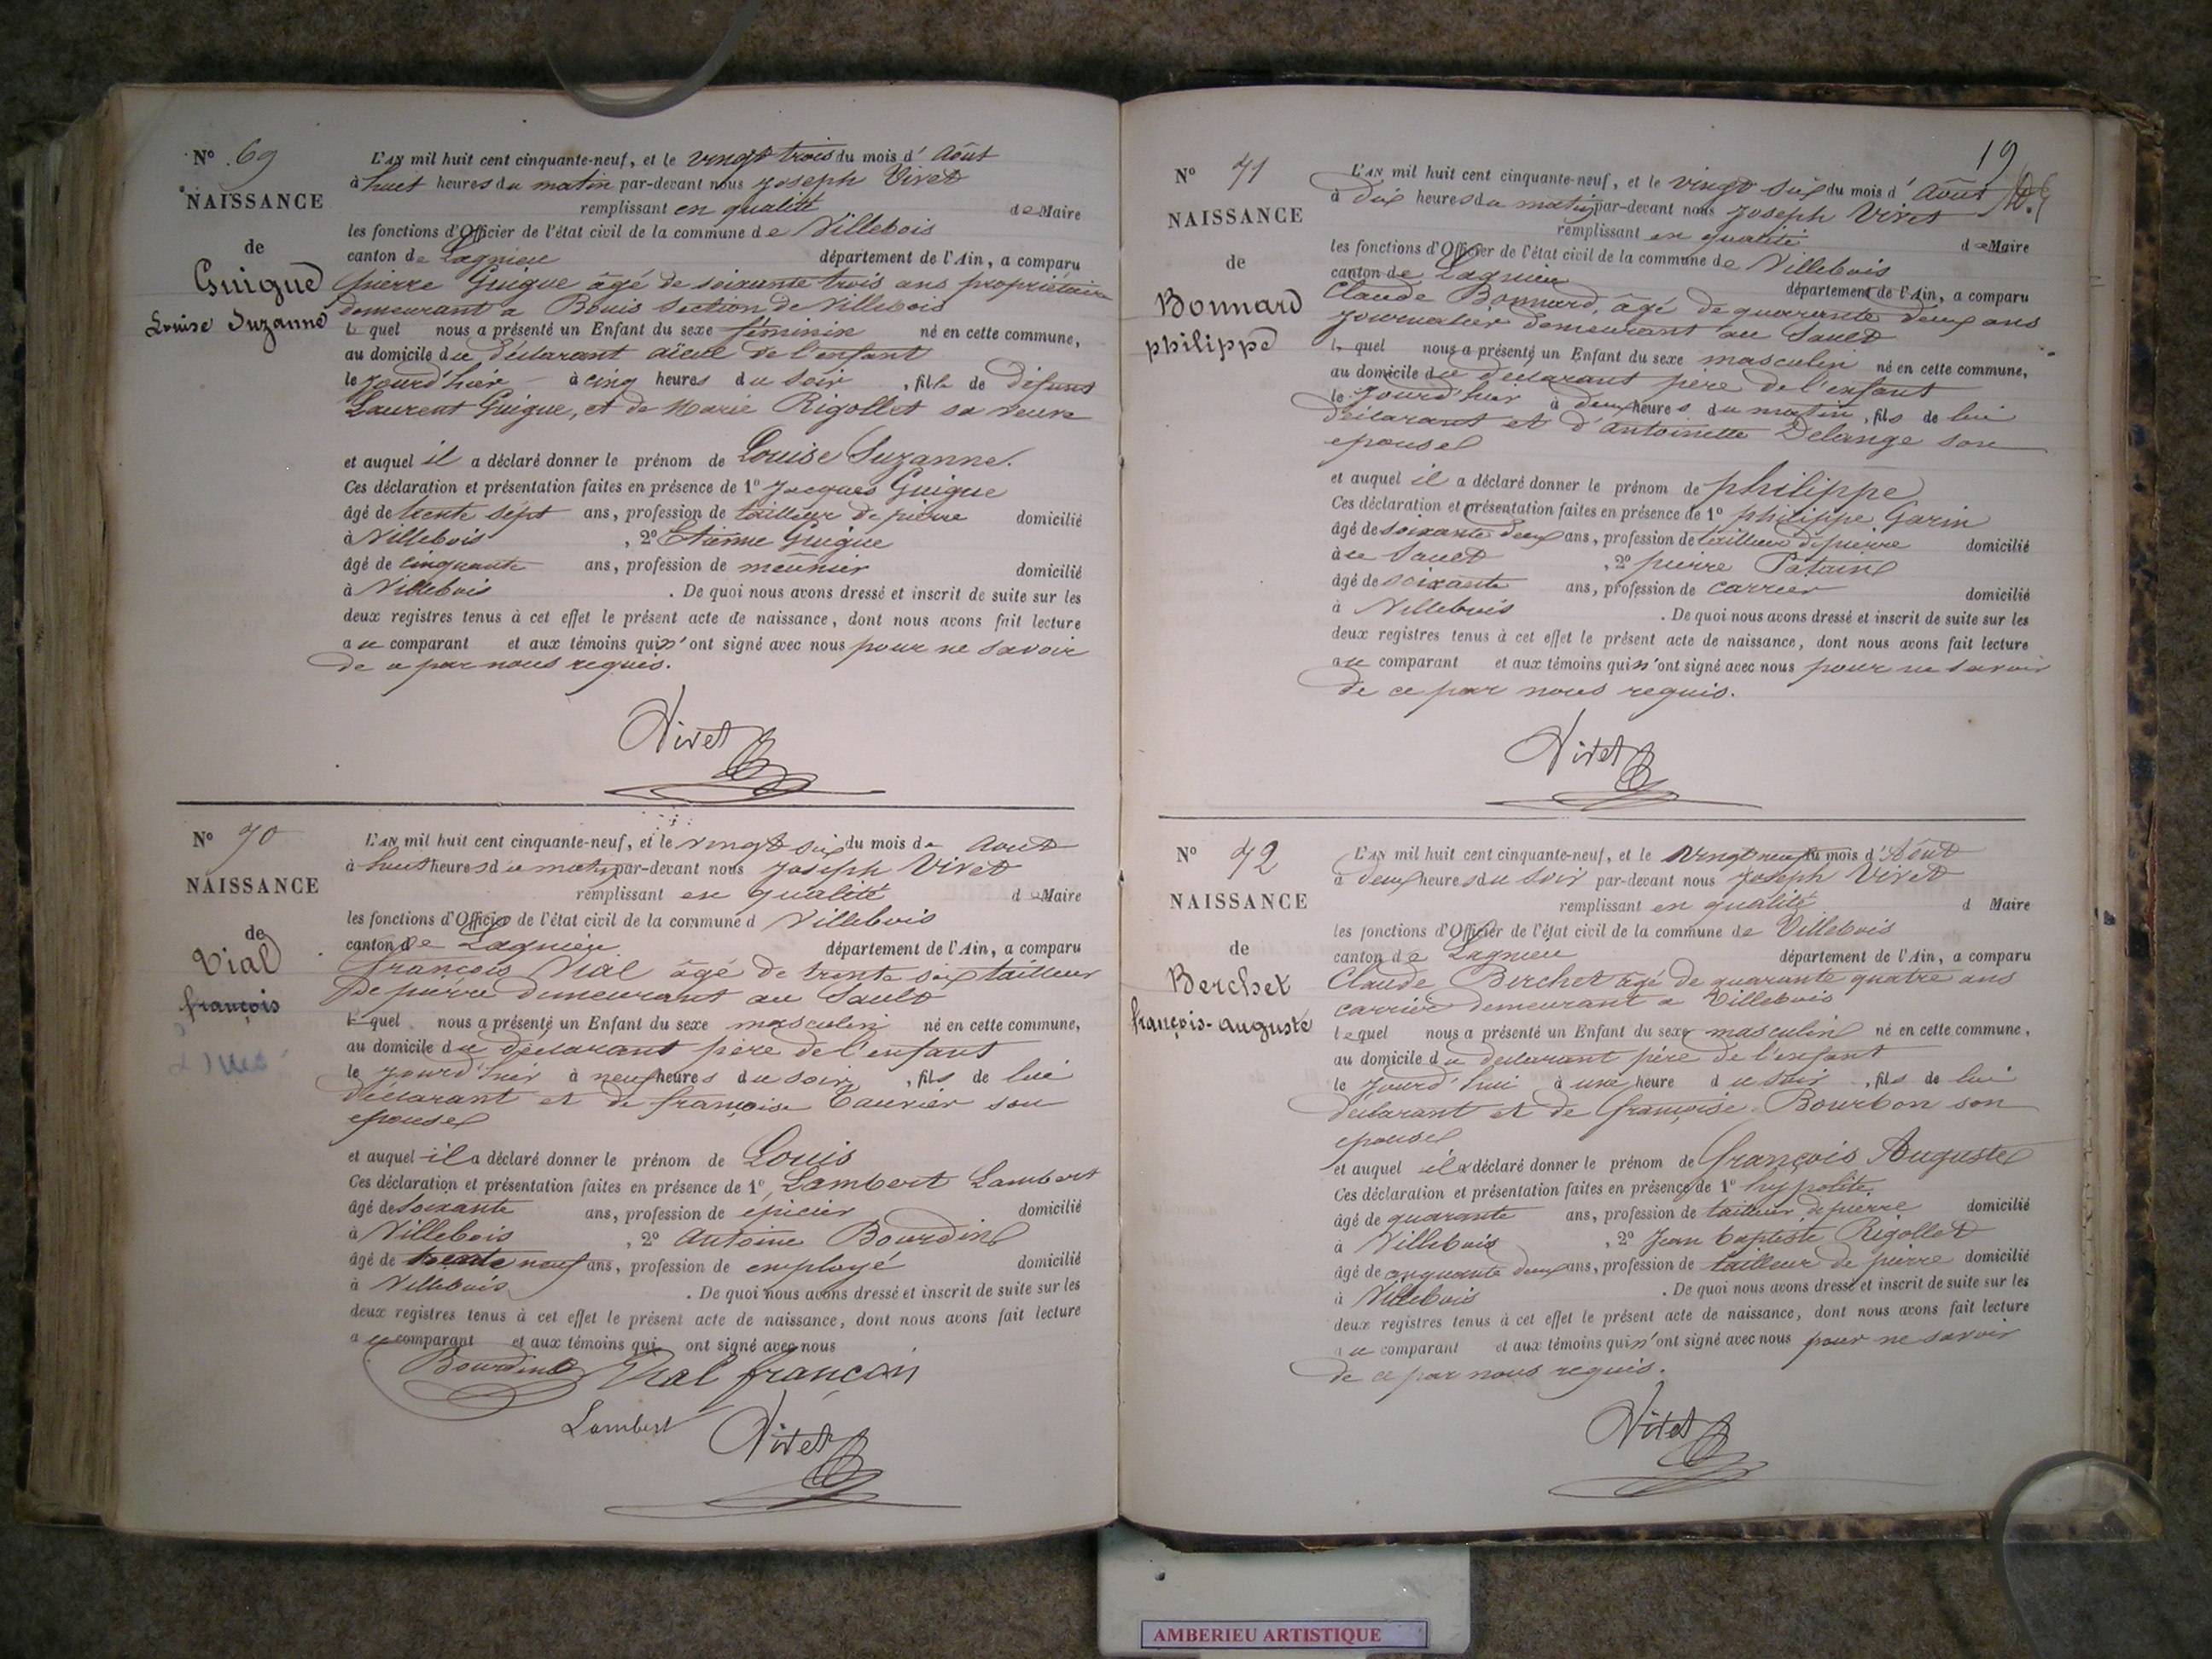 N° 69
NAISSANCE
de
Guigue
Louise Suzanne
L'AN mil huit cent cinquante-neuf, et le vingt trois du mois d' Août
à huit heures du matin par-devant nous Joseph Vivet
remplissant en qualité de Maire
les fonctions d'Officier de l'état civil de la commune de Villebois
canton de Lagnieu département de l'Ain, a comparu
pierre Guigue âgé de soixante trois ans propriétaire
demeurant a Bouis section de Villebois
le quel nous a présenté un Enfant du sexe féminin né en cette commune,
au domicile du déclarant aïeul de l'enfant
le jourd'hier à cinq heures du soir, fille de défunt
Laurent Guigue, et de Marie Rigollet sa veuve
et auquel il a déclaré donner le prénom de Louise Suzanne.
Ces déclaration et présentation faites en présence de 1° Jacques Guigue
âgé de trente sept ans, profession de tailleur de pierre domicilié
à Villebois, 2° Etienne Guigue
âgé de cinquante ans, profession de meûnier domicilié
à Villebois. De quoi nous avons dressé et inscrit de suite sur les
deux registres tenus à cet effet le présent acte de naissance, dont nous avons fait lecture
au comparant et aux témoins qui n'ont signé avec nous pour ne savoir
de ce par nous requis.
Vivet
N° 70
NAISSANCE
de
Vial
françois
L'AN mil huit cent cinquante-neuf, et le vingt six du mois de Aout
à huit heures du matin par-devant nous Joseph Vivet
remplissant en qualité de Maire
les fonctions d'Officier de l'état civil de la commune d Villebois
canton de Lagnieu département de l'Ain, a comparu
François Vial âgé de trente six tailleur
de pierre demeurant au Sault
le quel nous a présenté un Enfant du sexe masculin né en cette commune,
au domicile du déclarant père de l'enfant
le jourd'hier à neuf heures du soir, fils de lui
déclarant et de françoise Tauvier son
epouse
et auquel il a déclaré donner le prénom de Louis
Ces déclaration et présentation faites en présence de 1° Lambert Lambert
âgé de soixante ans, profession de epicier domicilié
à Villebois, 2° Antoine Bourdin
âgé de trente neuf ans, profession de employé domicilié
à Villebois. De quoi nous avons dressé et inscrit de suite sur les
deux registres tenus à cet effet le présent acte de naissance, dont nous avons fait lecture
au comparant et aux témoins qui ont signé avec nous
Bourdin Vial françois
Lambert Vivet
19
N° 71
NAISSANCE
de
Bonnard
philippe
L'AN mil huit cent cinquante-neuf, et le vingt six du mois d' Août
à dix heures du matin par-devant nous Joseph Vivet
remplissant en qualité de Maire
les fonctions d'Officier de l'état civil de la commune de Villebois
canton de Lagnieu département de l'Ain, a comparu
Claude Bonnard, âgé de quarante deux ans
journalier demeurant au Sault
le quel nous a présenté un Enfant du sexe masculin né en cette commune,
au domicile du declarant père de l'enfant
le jourd'hier à deux heures du matin, fils de lui
déclarant et d'antoinette Delange son
epouse
et auquel il a déclaré donner le prénom de philippe
Ces déclaration et présentation faites en présence de 1° philippe Garin
âgé de soixante deux ans, profession de tailleur de pierre domicilié
à le Sault, 2° pierre
âgé de soixante ans, profession de carrier domicilié
à Villebois. De quoi nous avons dressé et inscrit de suite sur les
deux registres tenus à cet effet le présent acte de naissance, dont nous avons fait lecture
au comparant et aux témoins qui n'ont signé avec nous pour ne savoir
de ce par nous requis.
Vivet
N° 72
NAISSANCE
de
Berchet
françois-auguste
L'AN mil huit cent cinquante-neuf, et le vingt neuf du mois d' Août
à deux heures du soir par-devant nous Joseph Vivet
remplissant en qualité d Maire
les fonctions d'Officier de l'état civil de la commune de Villebois
canton de Lagnieu département de l'Ain, a comparu
Claude Berchet âgé de quarante quatre ans
carrier demeurant a Villebois
lequel nous a présenté un Enfant du sexe masculin né en cette commune,
au domicile du declarant père de l'enfant
le jourd'hui à une heure du soir, fils de lui
déclarant et de françoise Bourbon son
epouse
et auquel il a déclaré donner le prénom de françois Auguste
Ces déclaration et présentation faites en présence de 1° hypolite
âgé de quarante ans, profession de tailleur de pierre domicilié
à Villebois, 2° Jean baptiste Rigollet
âgé de cinquante deux ans, profession de tailleur de pierre domicilié
à Villebois. De quoi nous avons dressé et inscrit de suite sur les
deux registres tenus à cet effet le présent acte de naissance, dont nous avons fait lecture
au comparant et aux témoins qui n'ont signé avec nous pour ne savoir
de ce par nous requis.
Vivet
AMBERIEU ARTISTIQUE